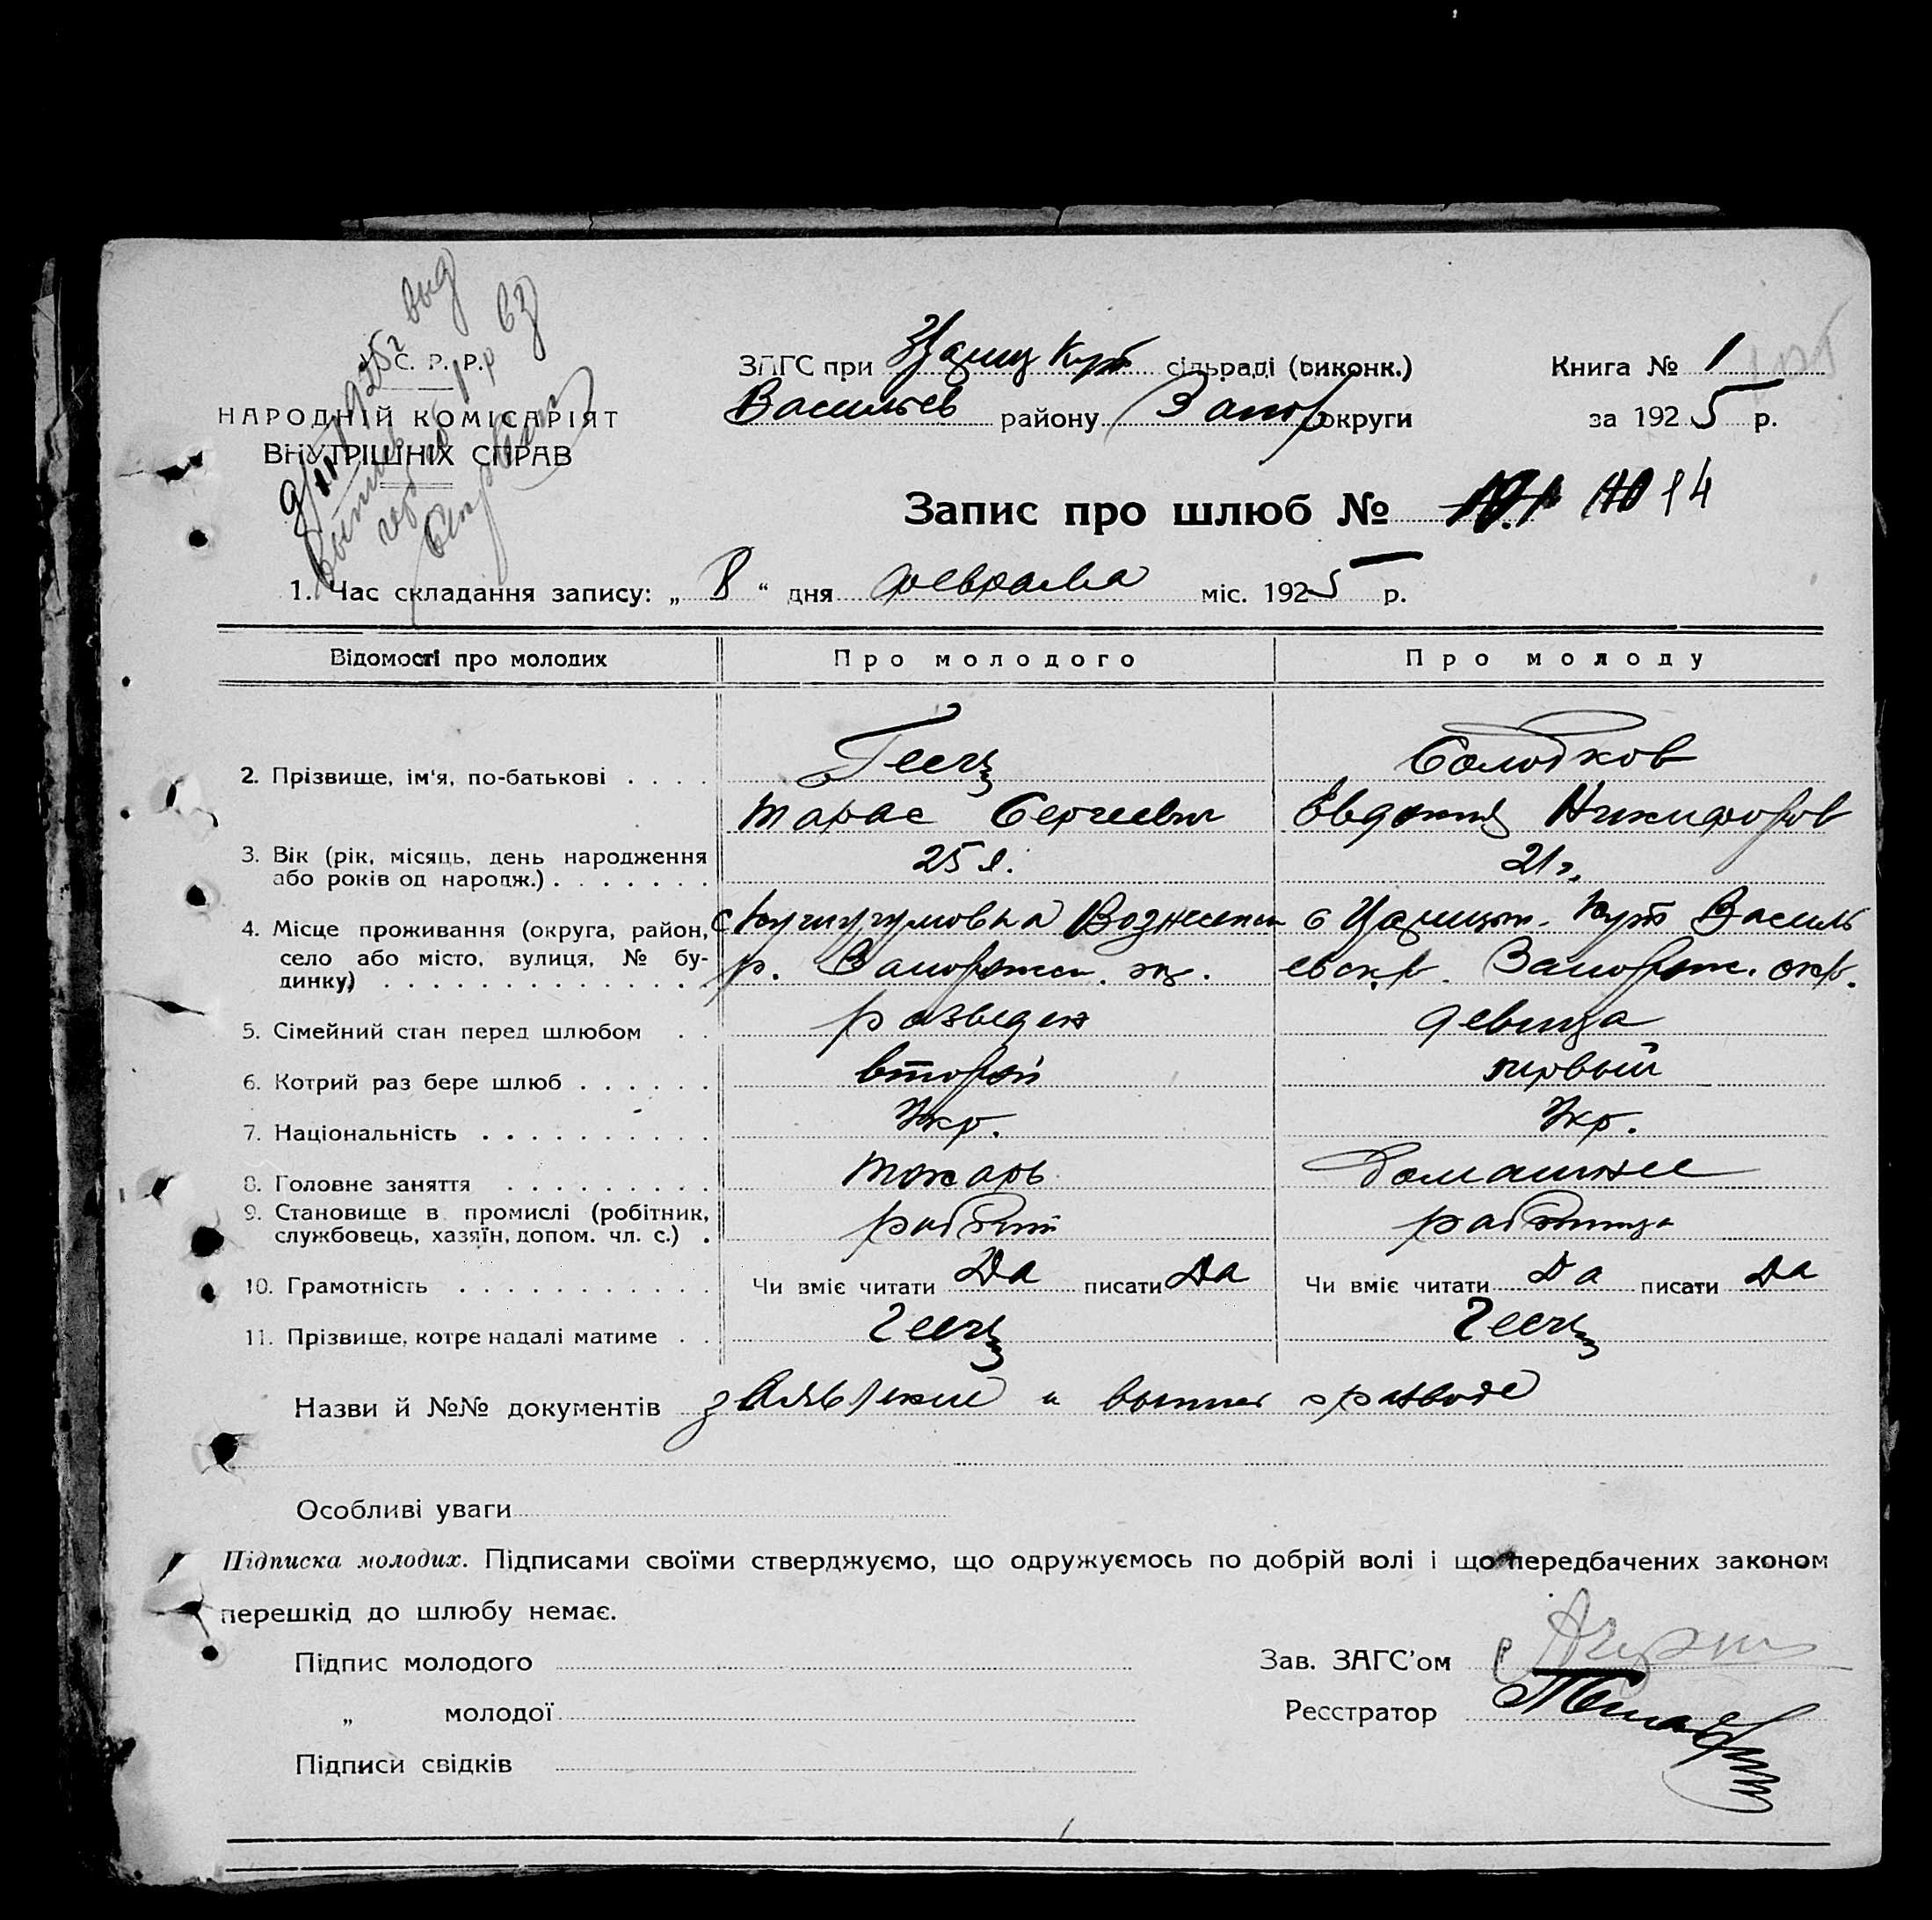 С. Р. Р.
НАРОДНІЙ КОМІСАРІЯТ
ВНУТРІШНІХ СПРАВ
ЗАГС при Цариц Кут сільраді (виконк.)
Васильев району Запор округи
Книга № 1
за 1925 р.
Запис про шлюб № 14
1. Час складання запису: „ 8 “ дня февраля міс. 1925 р.
Відомості про молодих Про молодого Про молоду
2. Прізвище, ім'я, по-батькові Солодков
Тарас Сергеевич Евдокия Никифоров
3. Вік (рік, місяць, день народження або років од народж.) 25 л. 21 г.
4. Місце проживання (округа, район, село або місто, вулиця, № будинку) с Кушугумовка Вознесенск с Царицын. Кут Василь
р. Запорожск. евск р. Запорож. окр.
5. Сімейний стан перед шлюбом разведен девица
6. Котрий раз бере шлюб второй первый
7. Національність Укр. Укр.
8. Головне заняття токарь Домашнее
9. Становище в промислі (робітник, службовець, хазяїн, допом. чл. с.) рабочий работница
10. Грамотність Чи вміє читати Да писати Да Чи вміє читати Да писати Да
11. Прізвище, котре надалі матиме
Назви й №№ документів заявление и выпись о разводе
Особливі уваги
Підписка молодих. Підписами своїми стверджуємо, що одружуємось по добрій волі і що передбачених законом
перешкід до шлюбу немає.
Підпис молодого Зав. ЗАГС'ом
„ молодої Реєстратор
Підписи свідків